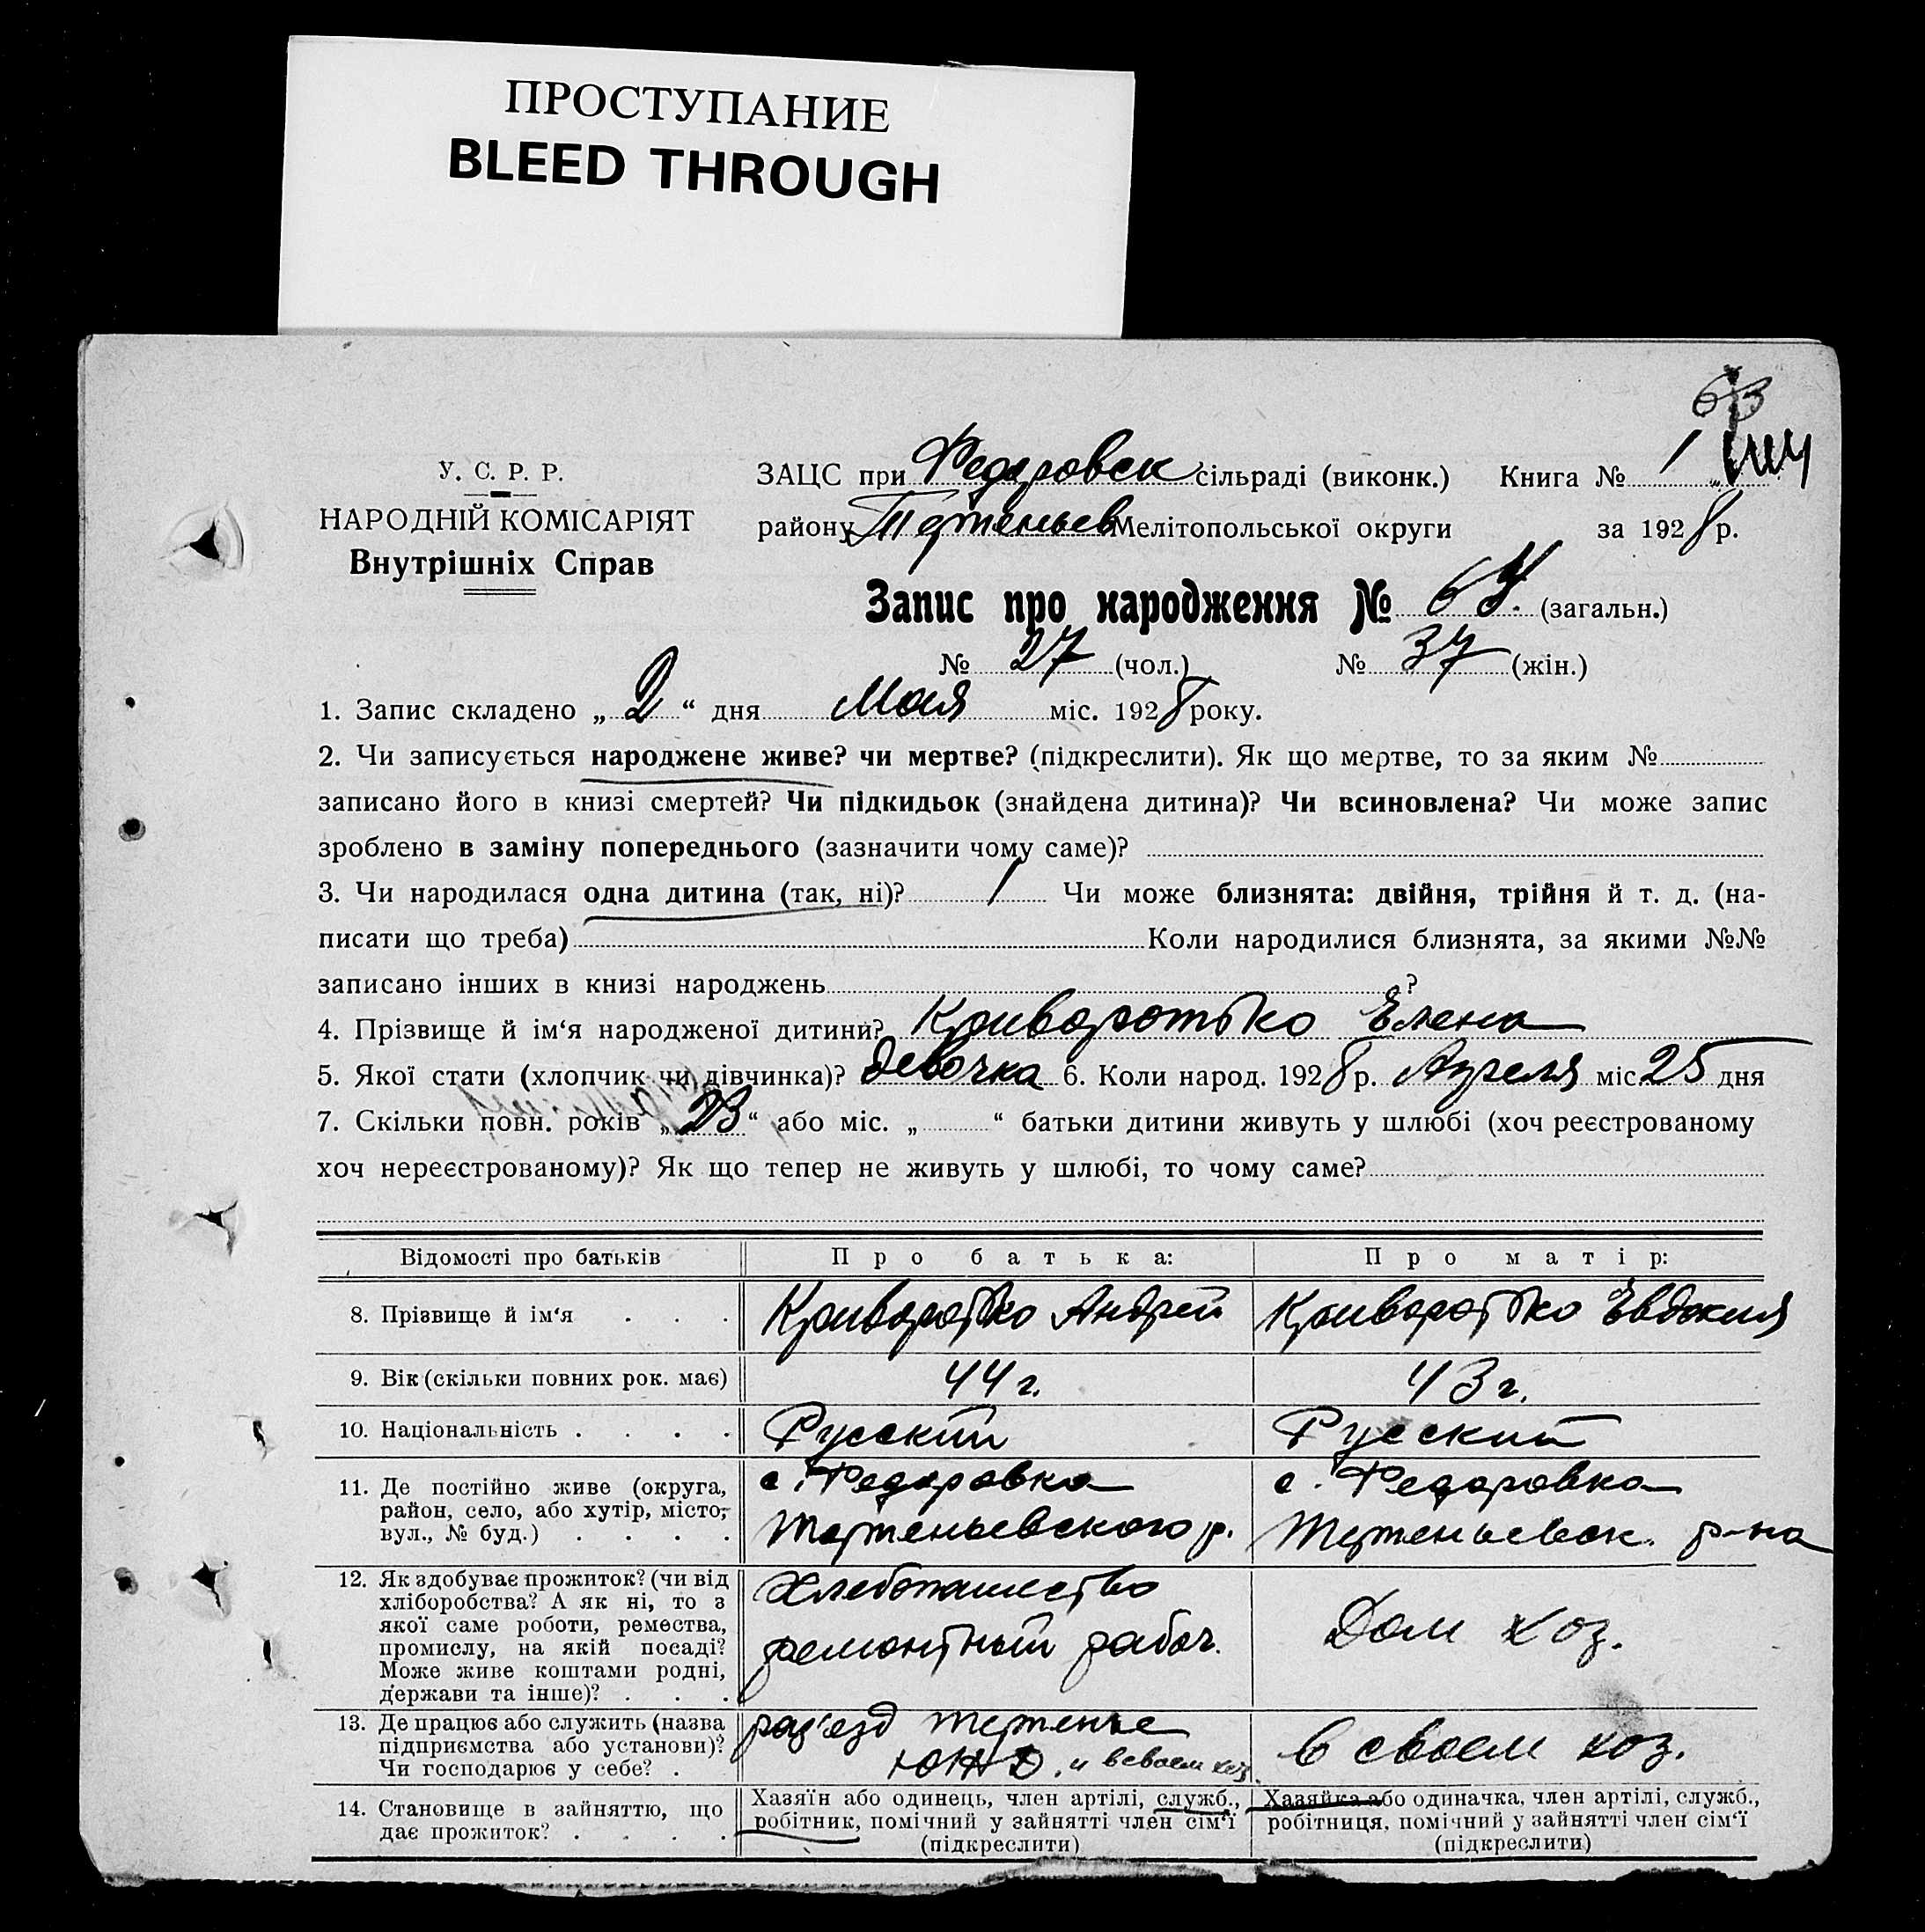 ПРОСТУПАНИЕ
BLEED THROUGH
63
У. С. Р. Р.
НАРОДНІЙ КОМІСАРІЯТ
Внутрішніх Справ
ЗАЦС при Федоровск сільраді (виконк.) Книга № 1
району Терпеньев Мелітопольської округи за 1928 р.
Запис про народження № 64. (загальн.)
№ 27 (чол.) № 37 (жін.)
1. Запис складено „ 2 “ дня Мая міс. 1928 року.
2. Чи записується народжене живе? чи мертве? (підкреслити). Як що мертве, то за яким №
записано його в книзі смертей? Чи підкидьок (знайдена дитина)? Чи всиновлена? Чи може запис
зроблено в заміну попереднього (зазначити чому саме)?
3. Чи народилася одна дитина (так, ні)? 1 Чи може близнята: двійня, трійня й т. д. (на-
писати що треба) Коли народилися близнята, за якими №№
записано інших в книзі народжень ?
4. Прізвище й ім‘я народженої дитини? Криворотько Елена
5. Якої стати (хлопчик чи дівчинка)? девочка 6. Коли народ. 1928 р. Апреля міс 25 дня
7. Скільки повн. років „ 23 “ або міс. „ “ батьки дитини живуть у шлюбі (хоч реєстрованому
хоч нереєстрованому)? Як що тепер не живуть у шлюбі, то чому саме?
Відомості про батьків Про батька: Про матір:
8. Прізвище й ім‘я . . . Криворотько Андрей Криворотько Евдокия
9. Вік (скільки повних рок. має) 44 г. 43 г.
10. Національність . . . . Русский Русский
11. Де постійно живе (округа, район, село, або хутір, місто, вул., № буд.) . . . .
с. Федоровка
Терпеньевского р.
с. Федоровка
Терпеньевск. р-на
12. Як здобуває прожиток? (чи від хліборобства? А як ні, то з якої саме роботи, ремества, промислу, на якій посаді? Може живе коштами родні, держави та інше)? . . .
Хлебопашество
ремонтный рабоч.
Дом хоз.
13. Де працює або служить (назва підприємства або установи)? Чи господарює у себе? .
раз‘езд Терпенье
и в своем хоз.
в своем хоз.
14. Становище в зайняттю, що дає прожиток? . . . .
Хазяїн або одинець, член артілі, служб., робітник, помічний у зайнятті член сім‘ї (підкреслити)
Хазяйка або одиначка, член артілі, служб., робітниця, помічний у зайнятті член сім‘ї (підкреслити)